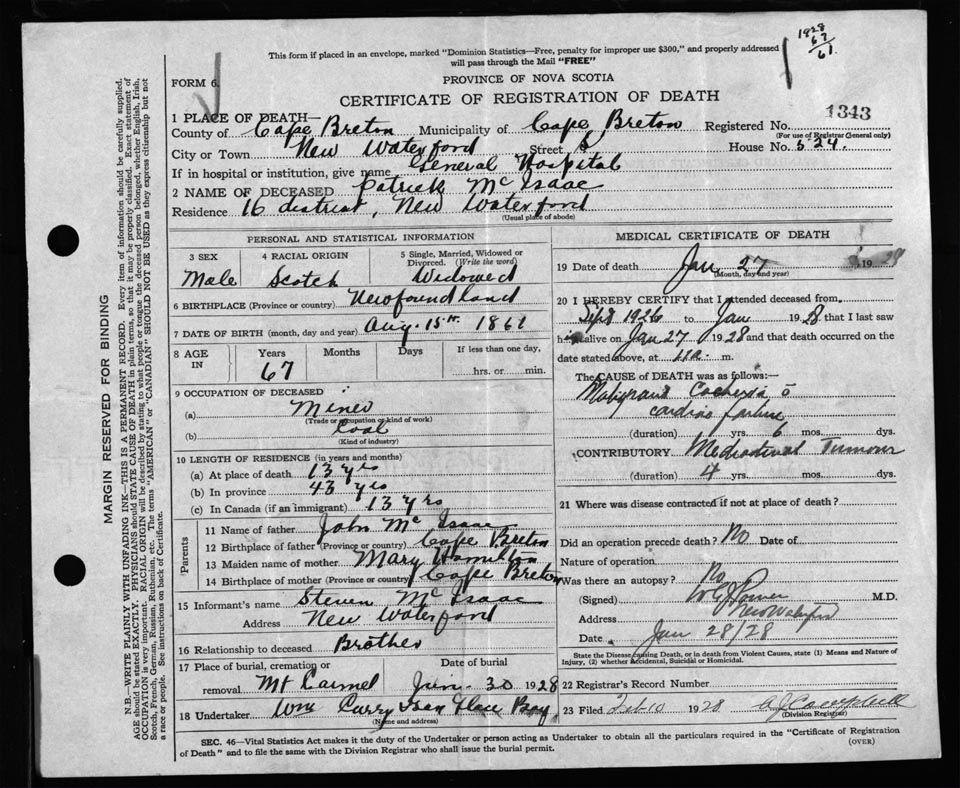 1828
67
61
This form if placed in an envelope, marked "Dominion Statistics—Free, penalty for improper use $300," and properly addressed
will pass through the Mail "FREE"
FORM 6.
PROVINCE OF NOVA SCOTIA
CERTIFICATE OF REGISTRATION OF DEATH
1343
1 PLACE OF DEATH—
County of Cape Breton Municipality of Cape Breton Registered No.
(For use of Registrar General only)
City or Town New Waterford Street House No. 524.
If in hospital or institution, give name General Hospital
2 NAME OF DECEASED Patrick McIsaac
Residence 16 district, New Waterford
(Usual place of abode)
PERSONAL AND STATISTICAL INFORMATION
3 SEX
Male
4 RACIAL ORIGIN
Scotch
5 Single, Married, Widowed or
Divorced. (Write the word)
Widowed
6 BIRTHPLACE (Province or country) Newfoundland
7 DATE OF BIRTH (month, day and year) Aug. 15th. 1861
8 AGE IN
Years Months Days If less than one day,
67 hrs. or min.
9 OCCUPATION OF DECEASED
(a) Miner
(Trade or occupation or kind of work)
(b) Coal
(Kind of industry)
10 LENGTH OF RESIDENCE (in years and months)
(a) At place of death 13 yrs
(b) In province 43 yrs
(c) In Canada (if an immigrant) 13 yrs
Parents
11 Name of father John McIsaac
12 Birthplace of father (Province or country) Cape Breton
13 Maiden name of mother Mary Hamilton
14 Birthplace of mother (Province or country) Cape Breton
15 Informant's name Steven McIsaac
Address New Waterford
16 Relationship to deceased Brother
17 Place of burial, cremation or Date of burial
removal Mt Carmel Jan. 30 1928
18 Undertaker Wm Curry Glace Bay
(Name and address)
MEDICAL CERTIFICATE OF DEATH
19 Date of death Jan 27 1928
(Month, day and year)
20 I HEREBY CERTIFY that I attended deceased from
Sept 1926 to Jan 1928 that I last saw
h alive on Jan 27 1928 and that death occurred on the
date stated above, at m.
The CAUSE OF DEATH was as follows:—
Malignant Cachexia
cardiac failure
(duration) 1 yrs. 6 mos. dys.
CONTRIBUTORY Mediastinal Tumour
(duration) 4 yrs. mos. dys.
21 Where was disease contracted if not at place of death?
Did an operation precede death? No Date of
Nature of operation
Was there an autopsy? No
(Signed) M.D.
Address New Waterford
Date Jan 28/28
State the Disease causing Death, or in death from Violent Causes, state (1) Means and Nature of
Injury, (2) whether Accidental, Suicidal or Homicidal.
22 Registrar's Record Number
23 Filed Feb 10 1928 Campbell
(Division Registrar)
SEC. 46—Vital Statistics Act makes it duty of the Undertaker or person acting as Undertaker to obtain all the particulars required in the "Certificate of Registration
of Death" and to file the same with the Division Registrar who shall issue the burial permit.
(OVER)
MARGIN RESERVED FOR BINDING
N.B.—WRITE PLAINLY WITH UNFADING INK—THIS IS A PERMANENT RECORD. Every item of information should be carefully supplied.
AGE should be stated EXACTLY. PHYSICIANS should STATE CAUSE OF DEATH in plain terms, so that it may be properly classified. Exact statement of
OCCUPATION is very important. RACIAL ORIGIN will be described by stating to what people or tongue the deceased person belonged, whether English, Irish,
Scotch, French, German, Russian, Ruthenian, etc. The terms "AMERICAN" or "CANADIAN" SHOULD NOT BE USED as they express citizenship but not
a race or people. See instructions on back of Certificate.